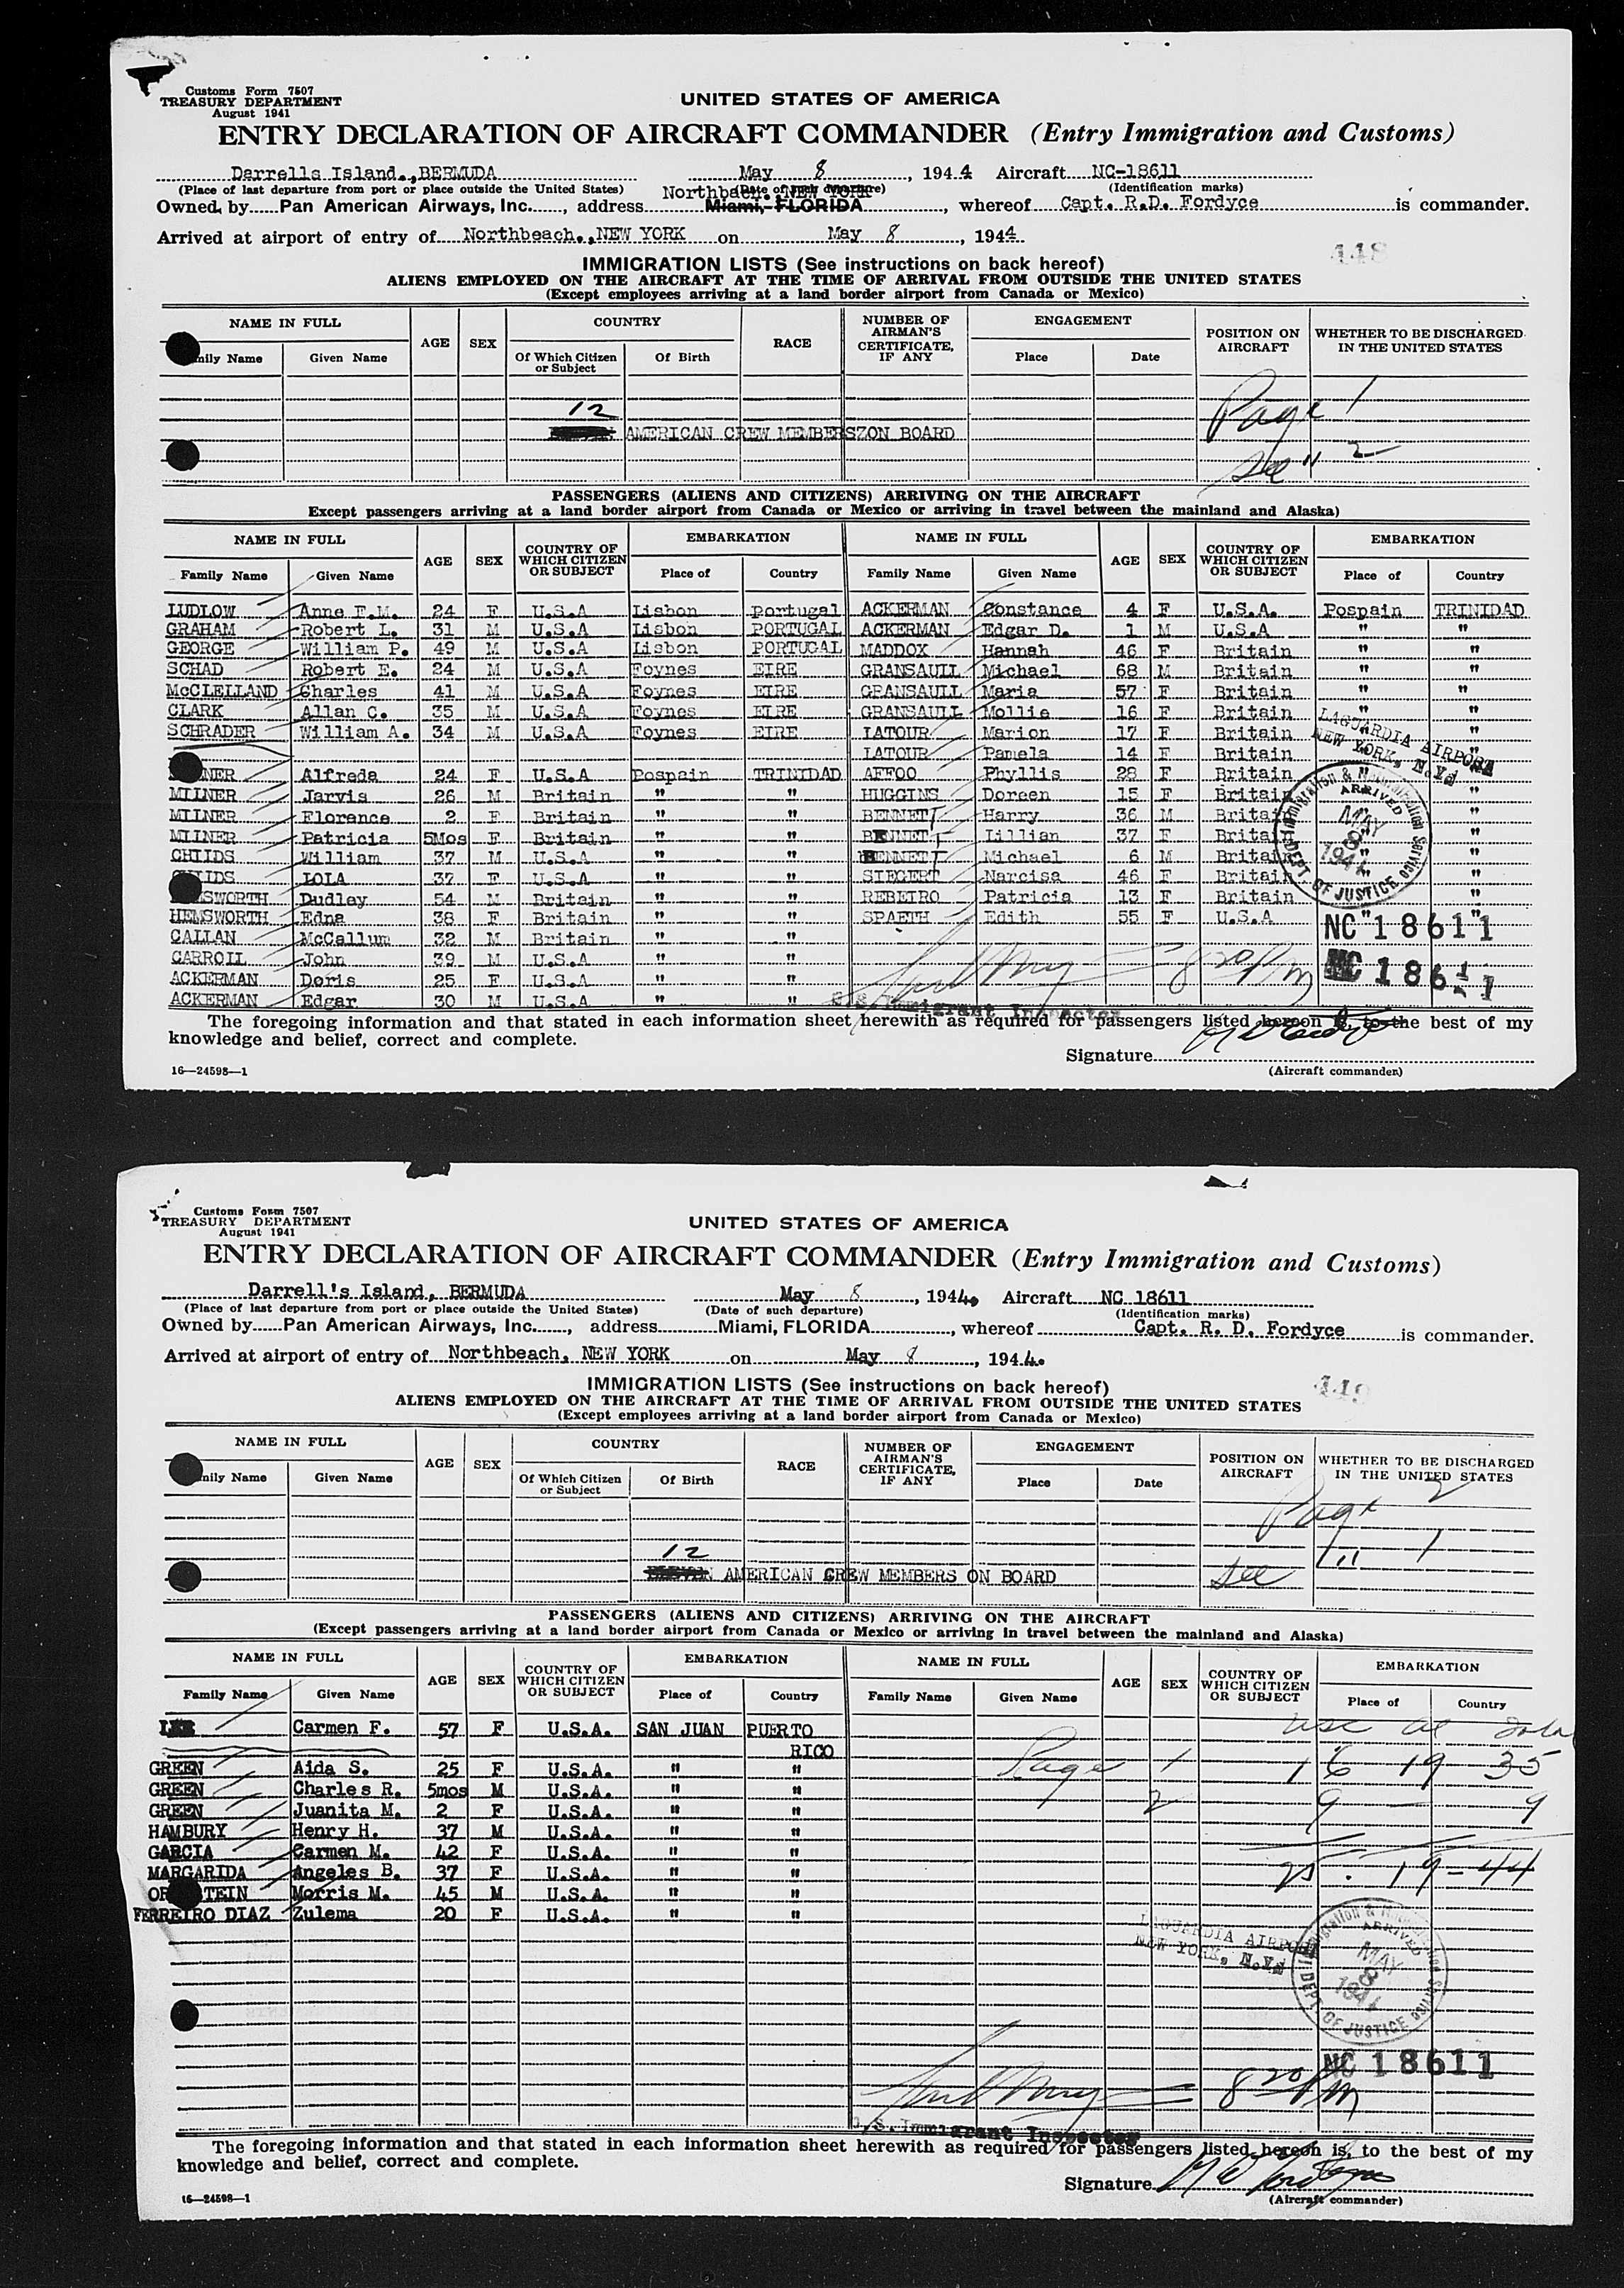 Customs Form 7507
TREASURY DEPARTMENT
August 1941
UNITED STATES OF AMERICA
ENTRY DECLARATION OF AIRCRAFT COMMANDER (Entry Immigration and Customs)
Darrells Island.,BERMUDA May 8, 1944 Aircraft NC-18611
(Place of last departure from port or place outside the United States) (Date of such departure) (Identification marks)
Northbeach., NEW YORK
Owned by Pan American Airways, Inc., address Miami, FLORIDA, whereof Capt. R.D. Fordyce is commander.
Arrived at airport of entry of Northbeach.,NEW YORK on May 8, 1944
448
IMMIGRATION LISTS (See instructions on back hereof)
ALIENS EMPLOYED ON THE AIRCRAFT AT THE TIME OF ARRIVAL FROM OUTSIDE THE UNITED STATES
(Except employees arriving at a land border airport from Canada or Mexico)
NAME IN FULL AGE SEX COUNTRY RACE NUMBER OF AIRMAN'S CERTIFICATE, IF ANY ENGAGEMENT POSITION ON AIRCRAFT WHETHER TO BE DISCHARGED IN THE UNITED STATES
mily Name Given Name Of Which Citizen or Subject Of Birth Place Date
Page 1
12
AMERICAN CREW MEMBERSZON BOARD
see " 2
PASSENGERS (ALIENS AND CITIZENS) ARRIVING ON THE AIRCRAFT
Except passengers arriving at a land border airport from Canada or Mexico or arriving in travel between the mainland and Alaska)
NAME IN FULL AGE SEX COUNTRY OF WHICH CITIZEN OR SUBJECT EMBARKATION NAME IN FULL AGE SEX COUNTRY OF WHICH CITIZEN OR SUBJECT EMBARKATION
Family Name Given Name Place of Country Family Name Given Name Place of Country
LUDLOW Anne F.M. 24 F U.S.A Lisbon Portugal ACKERMAN Constance 4 F U.S.A. Pospain TRINIDAD
GRAHAM Robert L. 31 M U.S.A Lisbon PORTUGAL ACKERMAN Edgar D. 1 M U.S.A " "
GEORGE William P. 49 M U.S.A Lisbon PORTUGAL MADDOX Hannah 46 F Britain " "
SCHAD Robert E. 24 M U.S.A Foynes EIRE GRANSAULL Michael 68 M Britain " "
McCLELLAND Charles 41 M U.S.A Foynes EIRE GRANSAULL Maria 57 F Britain " "
CLARK Allan C. 35 M U.S.A Foynes EIRE GRANSAULL Mollie 16 F Britain " "
SCHRADER William A. 34 M U.S.A Foynes EIRE LATOUR Marion 17 F Britain " "
LATOUR Pamela 14 F Britain "
NER Alfreda 24 F U.S.A Pospain TRINIDAD AFFOO Phyllis 28 F Britain
MILNER Jarvis 26 M Britain " " HUGGINS Doreen 15 F Britain "
MILNER Florence 2 F Britain " " BENNETT Harry 36 M Britain "
MILNER Patricia 5Mos F Britain " " BENNETT Lillian 37 F Britain "
CHILDS William 37 M U.S.A " " BENNETT Michael 6 M Britain "
CHILDS LOLA 37 F U.S.A " " SIEGERT Narcisa 46 F Britain "
SWORTH Dudley 54 M Britain " " REBEIRO Patricia 13 F Britain "
HEMSWORTH Edna 38 F Britain " " SPAETH Edith 55 F U.S.A " "
CALLAN McCallum 32 M Britain " "
CARROLL John 39 M U.S.A " "
ACKERMAN Doris 25 F U.S.A " "
ACKERMAN Edgar 30 M U.S.A " "
LAGUARDIA AIRPORT
NEW YORK, N.Y.
Immigration & Naturalization Service
ARRIVED
MAY
8
1944
DEPT. OF JUSTICE
NC 18611
NC 18611
8 20 PM
U.S. Immigrant Inspector
The foregoing information and that stated in each information sheet herewith as required for passengers listed hereon is, to the best of my
knowledge and belief, correct and complete.
Signature
(Aircraft commander)
16—24598—1
Customs Form 7507
TREASURY DEPARTMENT
August 1941
UNITED STATES OF AMERICA
ENTRY DECLARATION OF AIRCRAFT COMMANDER (Entry Immigration and Customs)
Darrell's Island, BERMUDA May 8, 1944. Aircraft NC 18611
(Place of last departure from port or place outside the United States) (Date of such departure) (Identification marks)
Owned by Pan American Airways, Inc., address Miami, FLORIDA, whereof Capt. R. D. Fordyce is commander.
Arrived at airport of entry of Northbeach, NEW YORK on May 8, 1944.
449
IMMIGRATION LISTS (See instructions on back hereof)
ALIENS EMPLOYED ON THE AIRCRAFT AT THE TIME OF ARRIVAL FROM OUTSIDE THE UNITED STATES
(Except employees arriving at a land border airport from Canada or Mexico)
NAME IN FULL AGE SEX COUNTRY RACE NUMBER OF AIRMAN'S CERTIFICATE, IF ANY ENGAGEMENT POSITION ON AIRCRAFT WHETHER TO BE DISCHARGED IN THE UNITED STATES
mily Name Given Name Of Which Citizen or Subject Of Birth Place Date
Page 2
12
AMERICAN CREW MEMBERS ON BOARD
see " 1
PASSENGERS (ALIENS AND CITIZENS) ARRIVING ON THE AIRCRAFT
(Except passengers arriving at a land border airport from Canada or Mexico or arriving in travel between the mainland and Alaska)
NAME IN FULL AGE SEX COUNTRY OF WHICH CITIZEN OR SUBJECT EMBARKATION NAME IN FULL AGE SEX COUNTRY OF WHICH CITIZEN OR SUBJECT EMBARKATION
Family Name Given Name Place of Country Family Name Given Name Place of Country
LEE Carmen F. 57 F U.S.A. SAN JUAN PUERTO
RICO
usc al
GREEN Aida S. 25 F U.S.A. " " Page 1 16 19 35
GREEN Charles R. 5mos M U.S.A. " "
GREEN Juanita M. 2 F U.S.A. " " 2 9 — 9
HAMBURY Henry H. 37 M U.S.A. " "
GARCIA Carmen M. 42 F U.S.A. " "
MARGARIDA Angeles B. 37 F U.S.A. " " 25 19 = 44
OR TEIN Morris M. 45 M U.S.A. " "
FERREIRO DIAZ Zulema 20 F U.S.A. " "
LAGUARDIA AIRPORT
NEW YORK, N.Y.
Immigration & Naturalization Service
ARRIVED
MAY
8
1944
DEPT. OF JUSTICE
NC 18611
8 20 PM
U.S. Immigrant Inspector
The foregoing information and that stated in each information sheet herewith as required for passengers listed hereon is, to the best of my
knowledge and belief, correct and complete.
Signature
(Aircraft commander)
16—24598—1